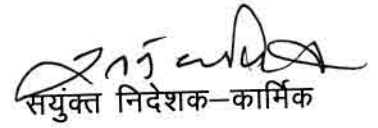 सयुंक्त निदेशक–कार्मिक